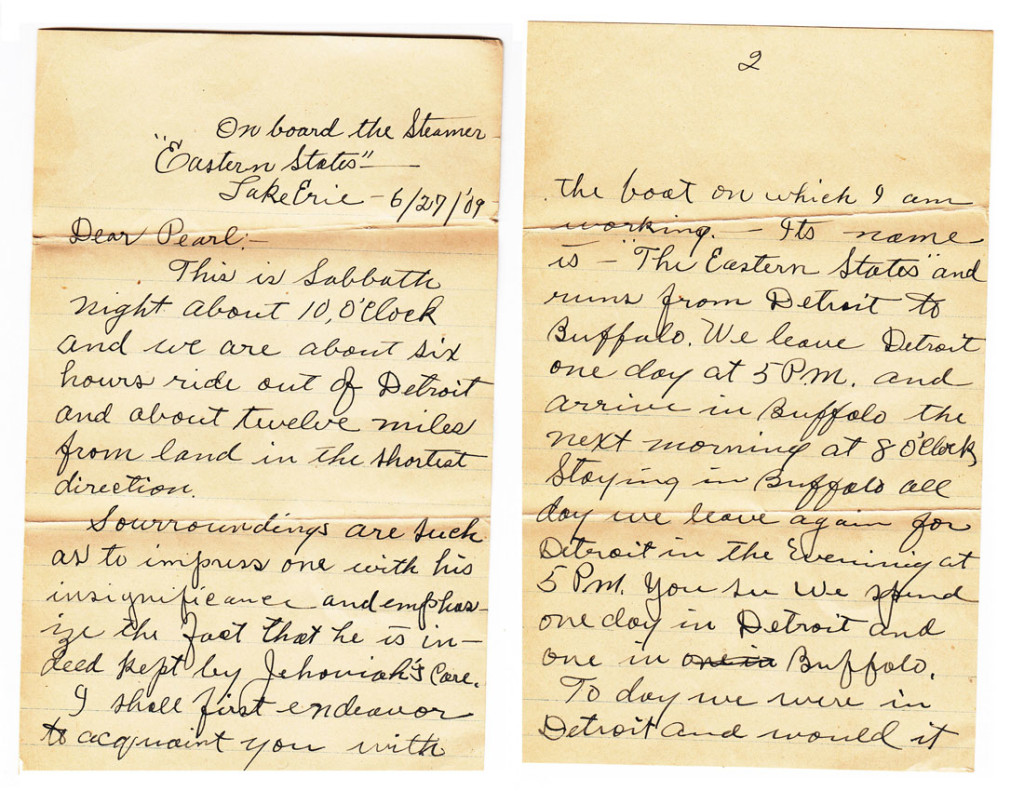 On board the Steamer
"Eastern States" —
Lake Erie – 6/27/'09
Dear Pearl:–
This is Sabbath
night about 10, O'Clock
and we are about six
hours ride out of Detroit
and about twelve miles
from land in the shortest
direction.
Sourroundings are such
as to impress one with his
insignificance and emphas-
ize the fact that he is in-
deed kept by Jehoviah's Care.
I shall first endeavor
to acquaint you with
2
the boat on which I am
working. – Its name
is – "The Eastern States" and
runs from Detroit to
Buffalo. We leave Detroit
one day at 5 P.M. and
arrive in Buffalo the
next morning at 8 O'Clock
Staying in Buffalo all
day we leave again for
Detroit in the Evening at
5 P.M. You see We spend
one day in Detroit and
one in one in Buffalo.
To day we were in
Detroit and would it